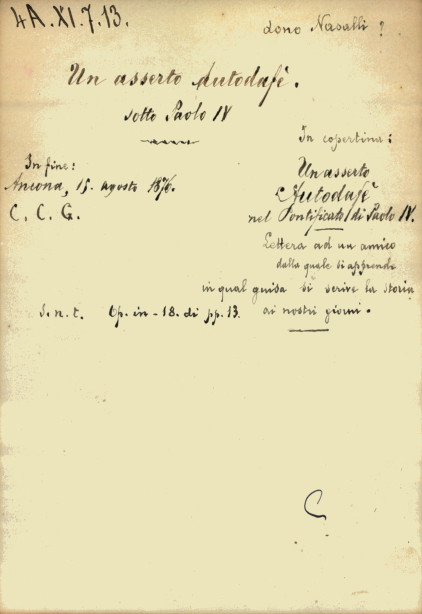 4A.XI.7.13.
dono Nasalli ?
Un asserto Autodafè.
sotto Paolo IV
In fine:
Ancona, 15. agosto 1876.
C. C. G.
In copertina:
Un asserto
Autodafè
nel Pontificato di Paolo IV.
Lettera ad un amico
dalla quale si apprende
in qual guisa si scrive la storia
ai nostri giorni.
S. n. t. Op. in-18. di pp. 13.
C